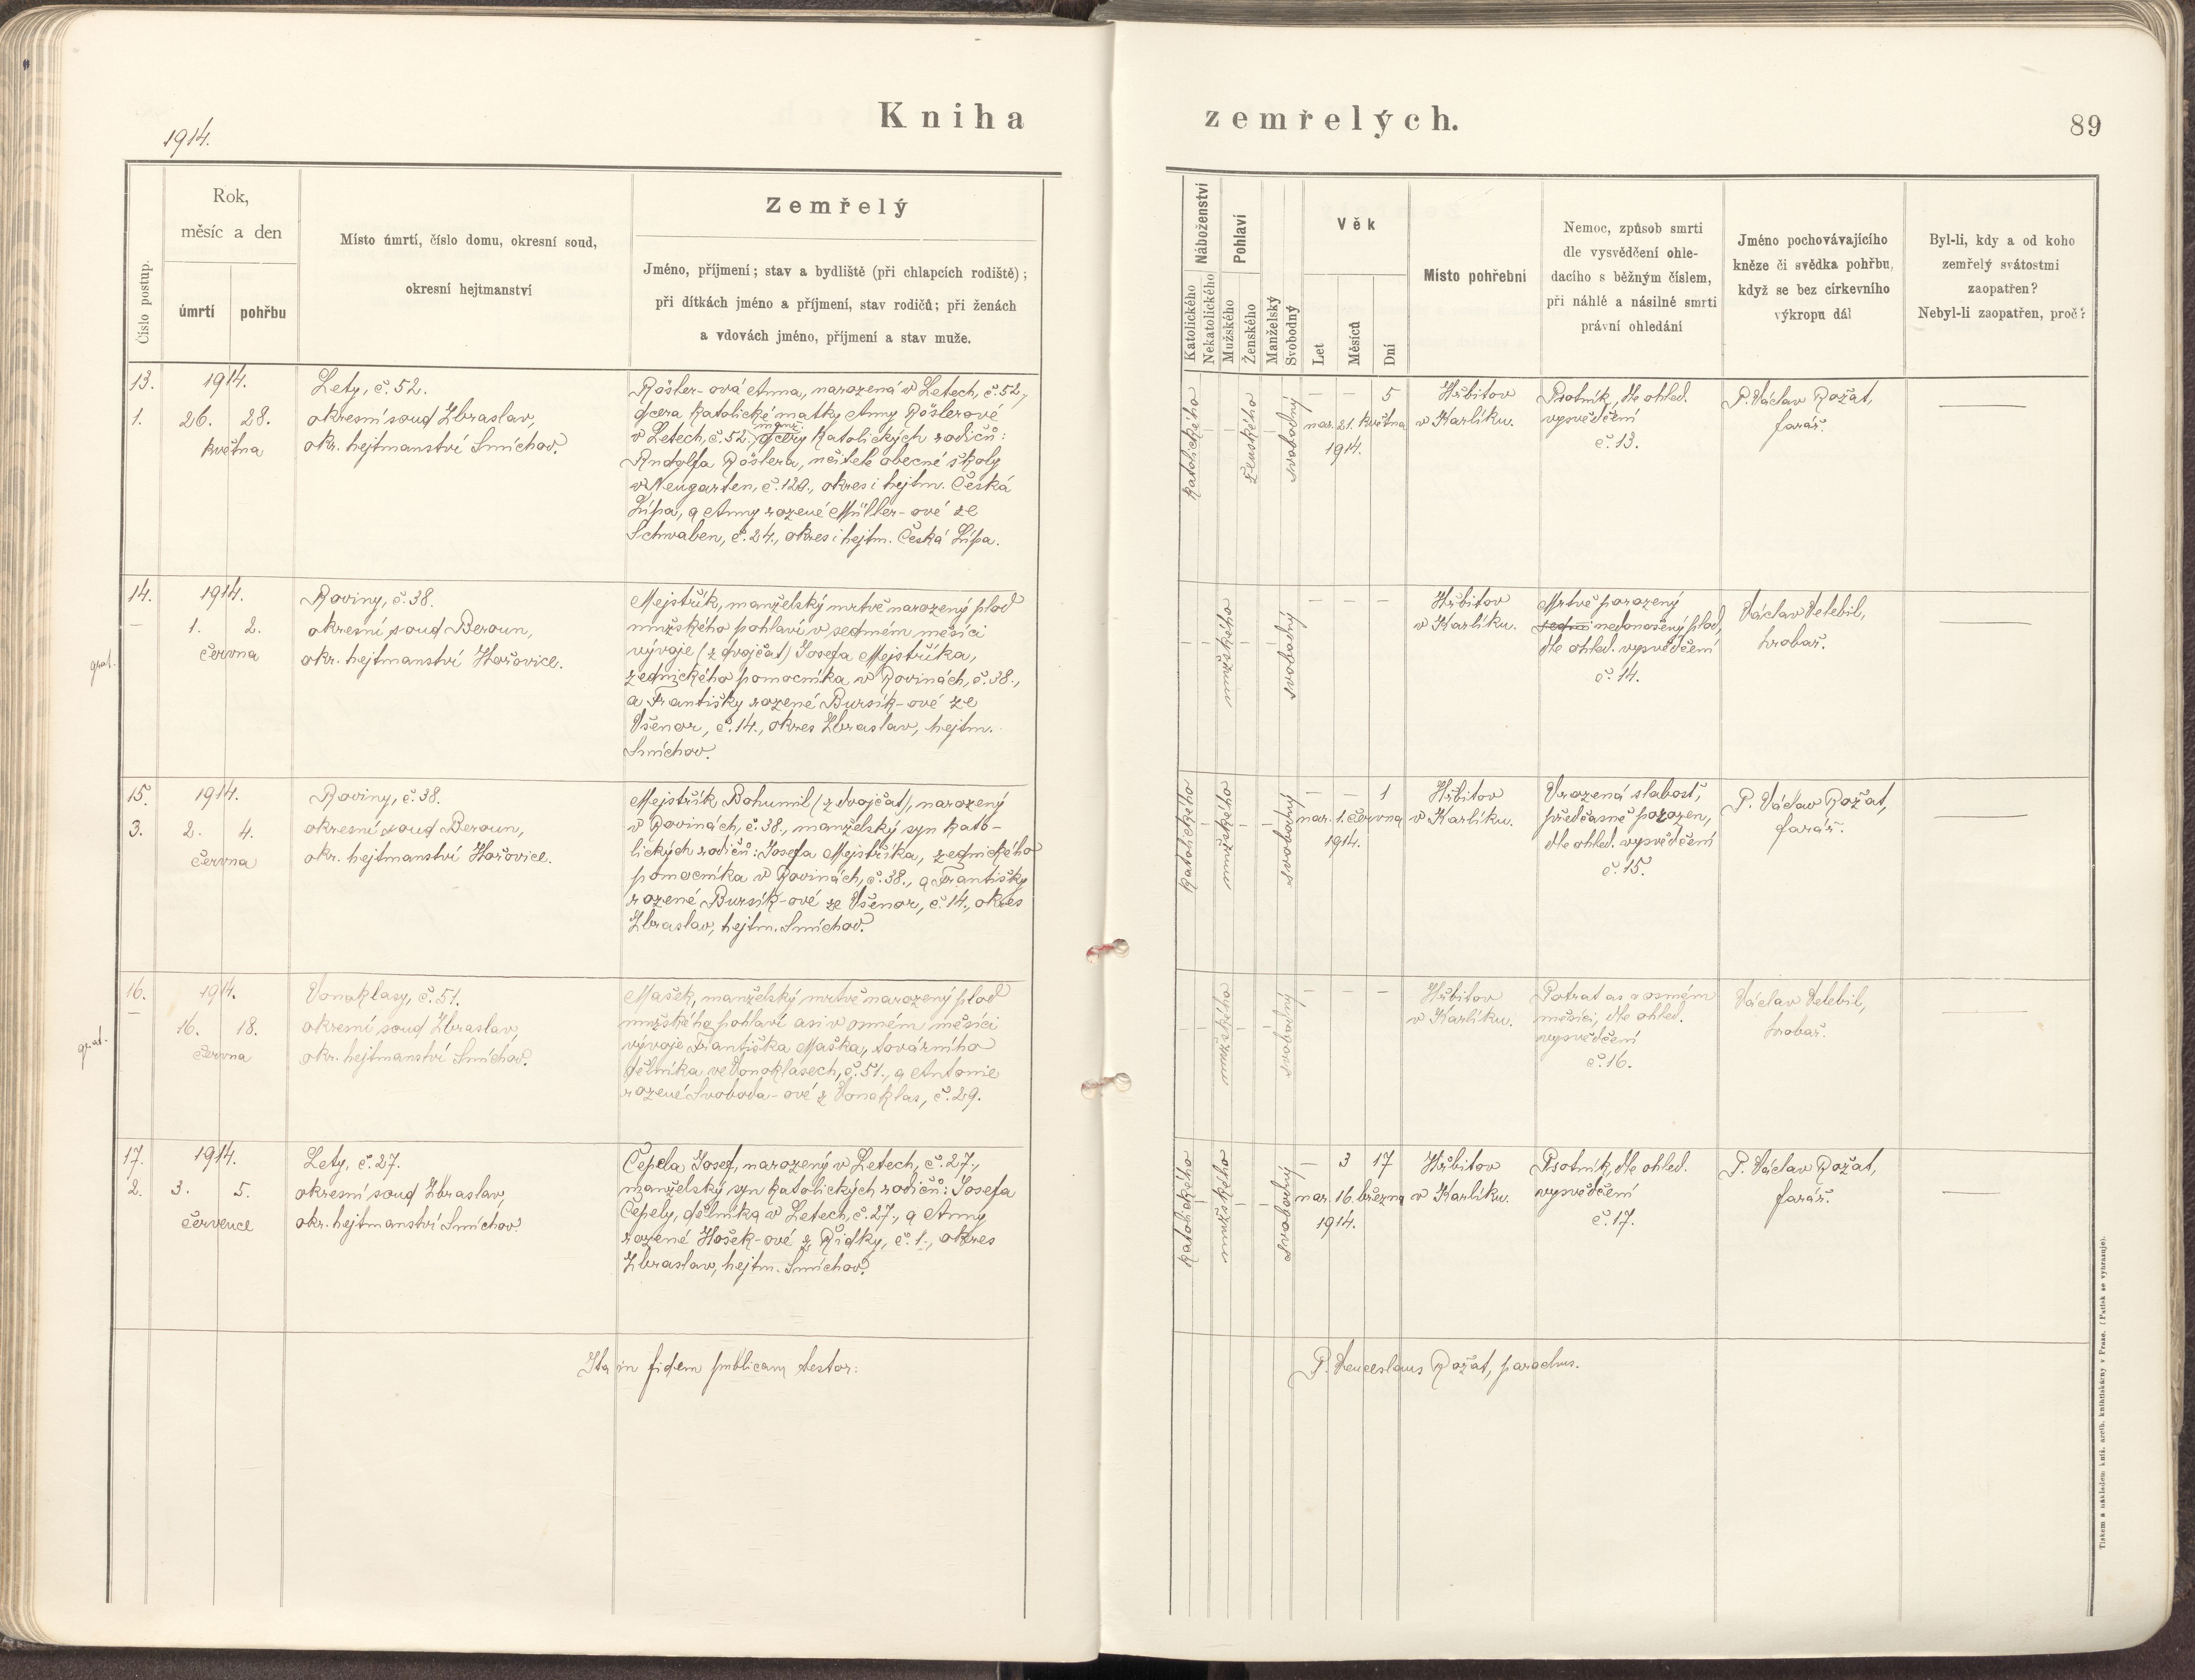 1914.
Kniha
zemřelých.
89
Číslo postup.
Rok,
měsíc a den
úmrtí
pohřbu
Místo úmrtí, číslo domu, okresní soud,
okresní hejtmanství
Zemřelý
Jméno, příjmení; stav a bydliště (při chlapcích rodiště);
při dítkách jméno a příjmení, stav rodičů; při ženách
a vdovách jméno, příjmení a stav muže.
Náboženství
Katolického
Nekatolického
Pohlaví
Mužského
Ženského
Manželský
Svobodný
Věk
Let
Měsíců
Dní
Místo pohřební
Nemoc, způsob smrti
dle vysvědčení ohle-
dacího s běžným číslem,
při náhlé a násilné smrti
právní ohledání
Jméno pochovávajícího
kněze či svědka pohřbu,
když se bez církevního
výkropu dál
Byl-li, kdy a od koho
zemřelý svátostmi
zaopatřen?
Nebyl-li zaopatřen, proč?
13.
1.
1914.
26. 28.
května
Lety, č. 52.
okresní soud Zbraslav,
okr. hejtmanství Smíchov.
Rösler-ová Anna, narozená v Letech, č. 52,
dcera katolické matky Anny Röslerové
v Letech, č. 52, manž. dcery katolických rodičů:
Rudolfa Röslera, učitele obecné školy
v Neugarten, č. 120., okres i hejtm. Česká
Lípa, a Anny rozené Müller-ové ze
Schwaben, č. 24., okres i hejtm. Česká Lípa.
katolického
—
—
ženského
—
svobodný
— — 5
nar. 21. května
1914.
Hřbitov
v Karlíku.
Psotník, dle ohled.
vysvědčení
č. 13.
P. Václav Rožat,
farář.
—
14.
—
1914.
1. 2.
června
grat.
Roviny, č. 38.
okresní soud Beroun,
okr. hejtmanství Hořovice.
Mejstřík, manželský mrtvě narozený plod
mužského pohlaví v sedmém měsíci
vývoje (z dvojčat) Josefa Mejstříka,
zednického pomocníka v Rovinách, č. 38.,
a Františky rozené Bursík-ové ze
Všenor, č. 14., okres Zbraslav, hejtm.
Smíchov.
—
—
mužského
—
—
svobodný
— — —
Hřbitov
v Karlíku.
Mrtvě porozený
nedonošený plod,
dle ohled. vysvědčení
č. 14.
Václav Velebil,
hrobař.
—
15.
3.
1914.
2. 4.
června
Roviny, č. 38.
okresní soud Beroun,
okr. hejtmanství Hořovice.
Mejstřík Bohumil (z dvojčat), narozený
v Rovinách, č. 38., manželský syn kato-
lických rodičů: Josefa Mejstříka, zednického
pomocníka v Rovinách, č. 38., a Františky
rozené Bursík-ové ze Všenor, č. 14., okres
Zbraslav, hejtm. Smíchov.
katolického
—
mužského
—
—
svobodný
— — 1
nar. 1. června
1914.
Hřbitov
v Karlíku.
Vrozená slabost,
předčasně porozen,
dle ohled. vysvědčení
č. 15.
P. Václav Rožat,
farář.
—
16.
—
1914.
16. 18.
června
grat.
Vonoklasy, č. 51.
okresní soud Zbraslav,
okr. hejtmanství Smíchov.
Mašek, manželský mrtvě narozený plod
mužského pohlaví asi v osmém měsíci
vývoje Františka Maška, továrního
dělníka ve Vonoklasech, č. 51., a Antonie
rozené Svoboda-ové z Vonoklas, č. 29.
mužského
—
—
svobodný
— — —
Hřbitov
v Karlíku.
Potrat as v osmém
měsíci, dle ohled.
vysvědčení
č. 16.
Václav Velebil,
hrobař.
—
17.
2.
1914.
3. 5.
července
Lety, č. 27.
okresní soud Zbraslav,
okr. hejtmanství Smíchov
Čepela Josef, narozený v Letech, č. 27.,
manželský syn katolických rodičů: Josefa
Čepely, dělníka v Letech, č. 27., a Anny
rozené Hošek-ové z Řidky, č. 1., okres
Zbraslav, hejtm. Smíchov.
katolického
—
mužského
—
—
svobodný
— 3 17
nar. 16. března
1914.
Hřbitov
v Karlíku.
Psotník, dle ohled.
vysvědčení
č. 17.
P. Václav Rožat,
farář.
—
Ita in fidem publicam testor:
P. Venceslaus Rožat, parochus.
Tiskem a nákladem kníž. arcib. knihtiskárny v Praze. (Patisk se vyhrazuje).